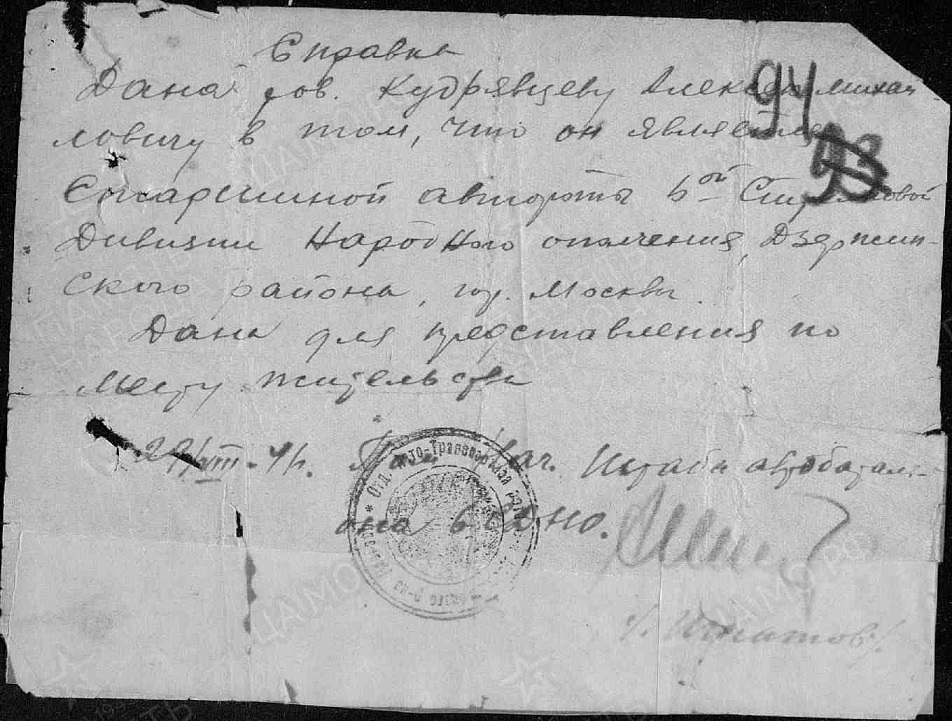 Справка
94
Дана тов. Кудрявцеву Александ Михай
ловичу в том, что он является
93
Старшиной автороты 6ой Стрелковой
Дивизии Народного ополчения, Дзержин-
ского района, гор. Москвы.
Дана для представления по
месту жительства
29/VIII-41г. Нач. Штаба автобаталь-
она 6 СДНО.
Отд. Авто-Транспортная рота
/Игнатов/.